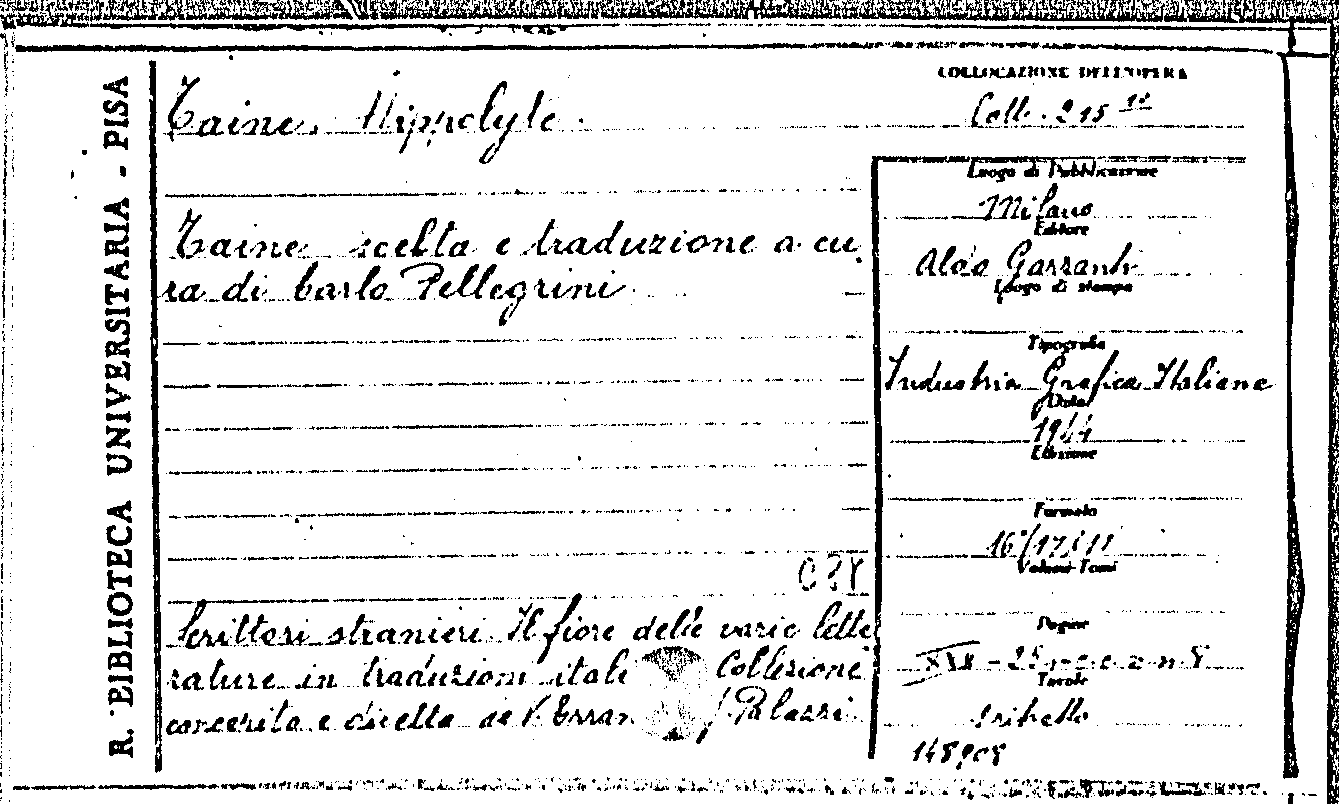 R. BIBLIOTECA UNIVERSITARIA - PISA
Taine, Hippolyte.
Taine scelta e traduzione a cu
ra di Carlo Pellegrini
Scrittori stranieri Il fiore delle varie lette
rature in traduzioni itali Collezione
concerita e diretta da V. Erran F. Palazzi
COLLOCAZIONE DELL'OPERA
Coll. 215
Luogo di Pubblicazione
Milano
Editore
Aldo Garzanti
Luogo di stampa
Tipografia
Industria Grafica Italiana
Data
1944
Edizione
Formato
16°/17x11
Volumi-Tomi
Pagine
Tavole
148908